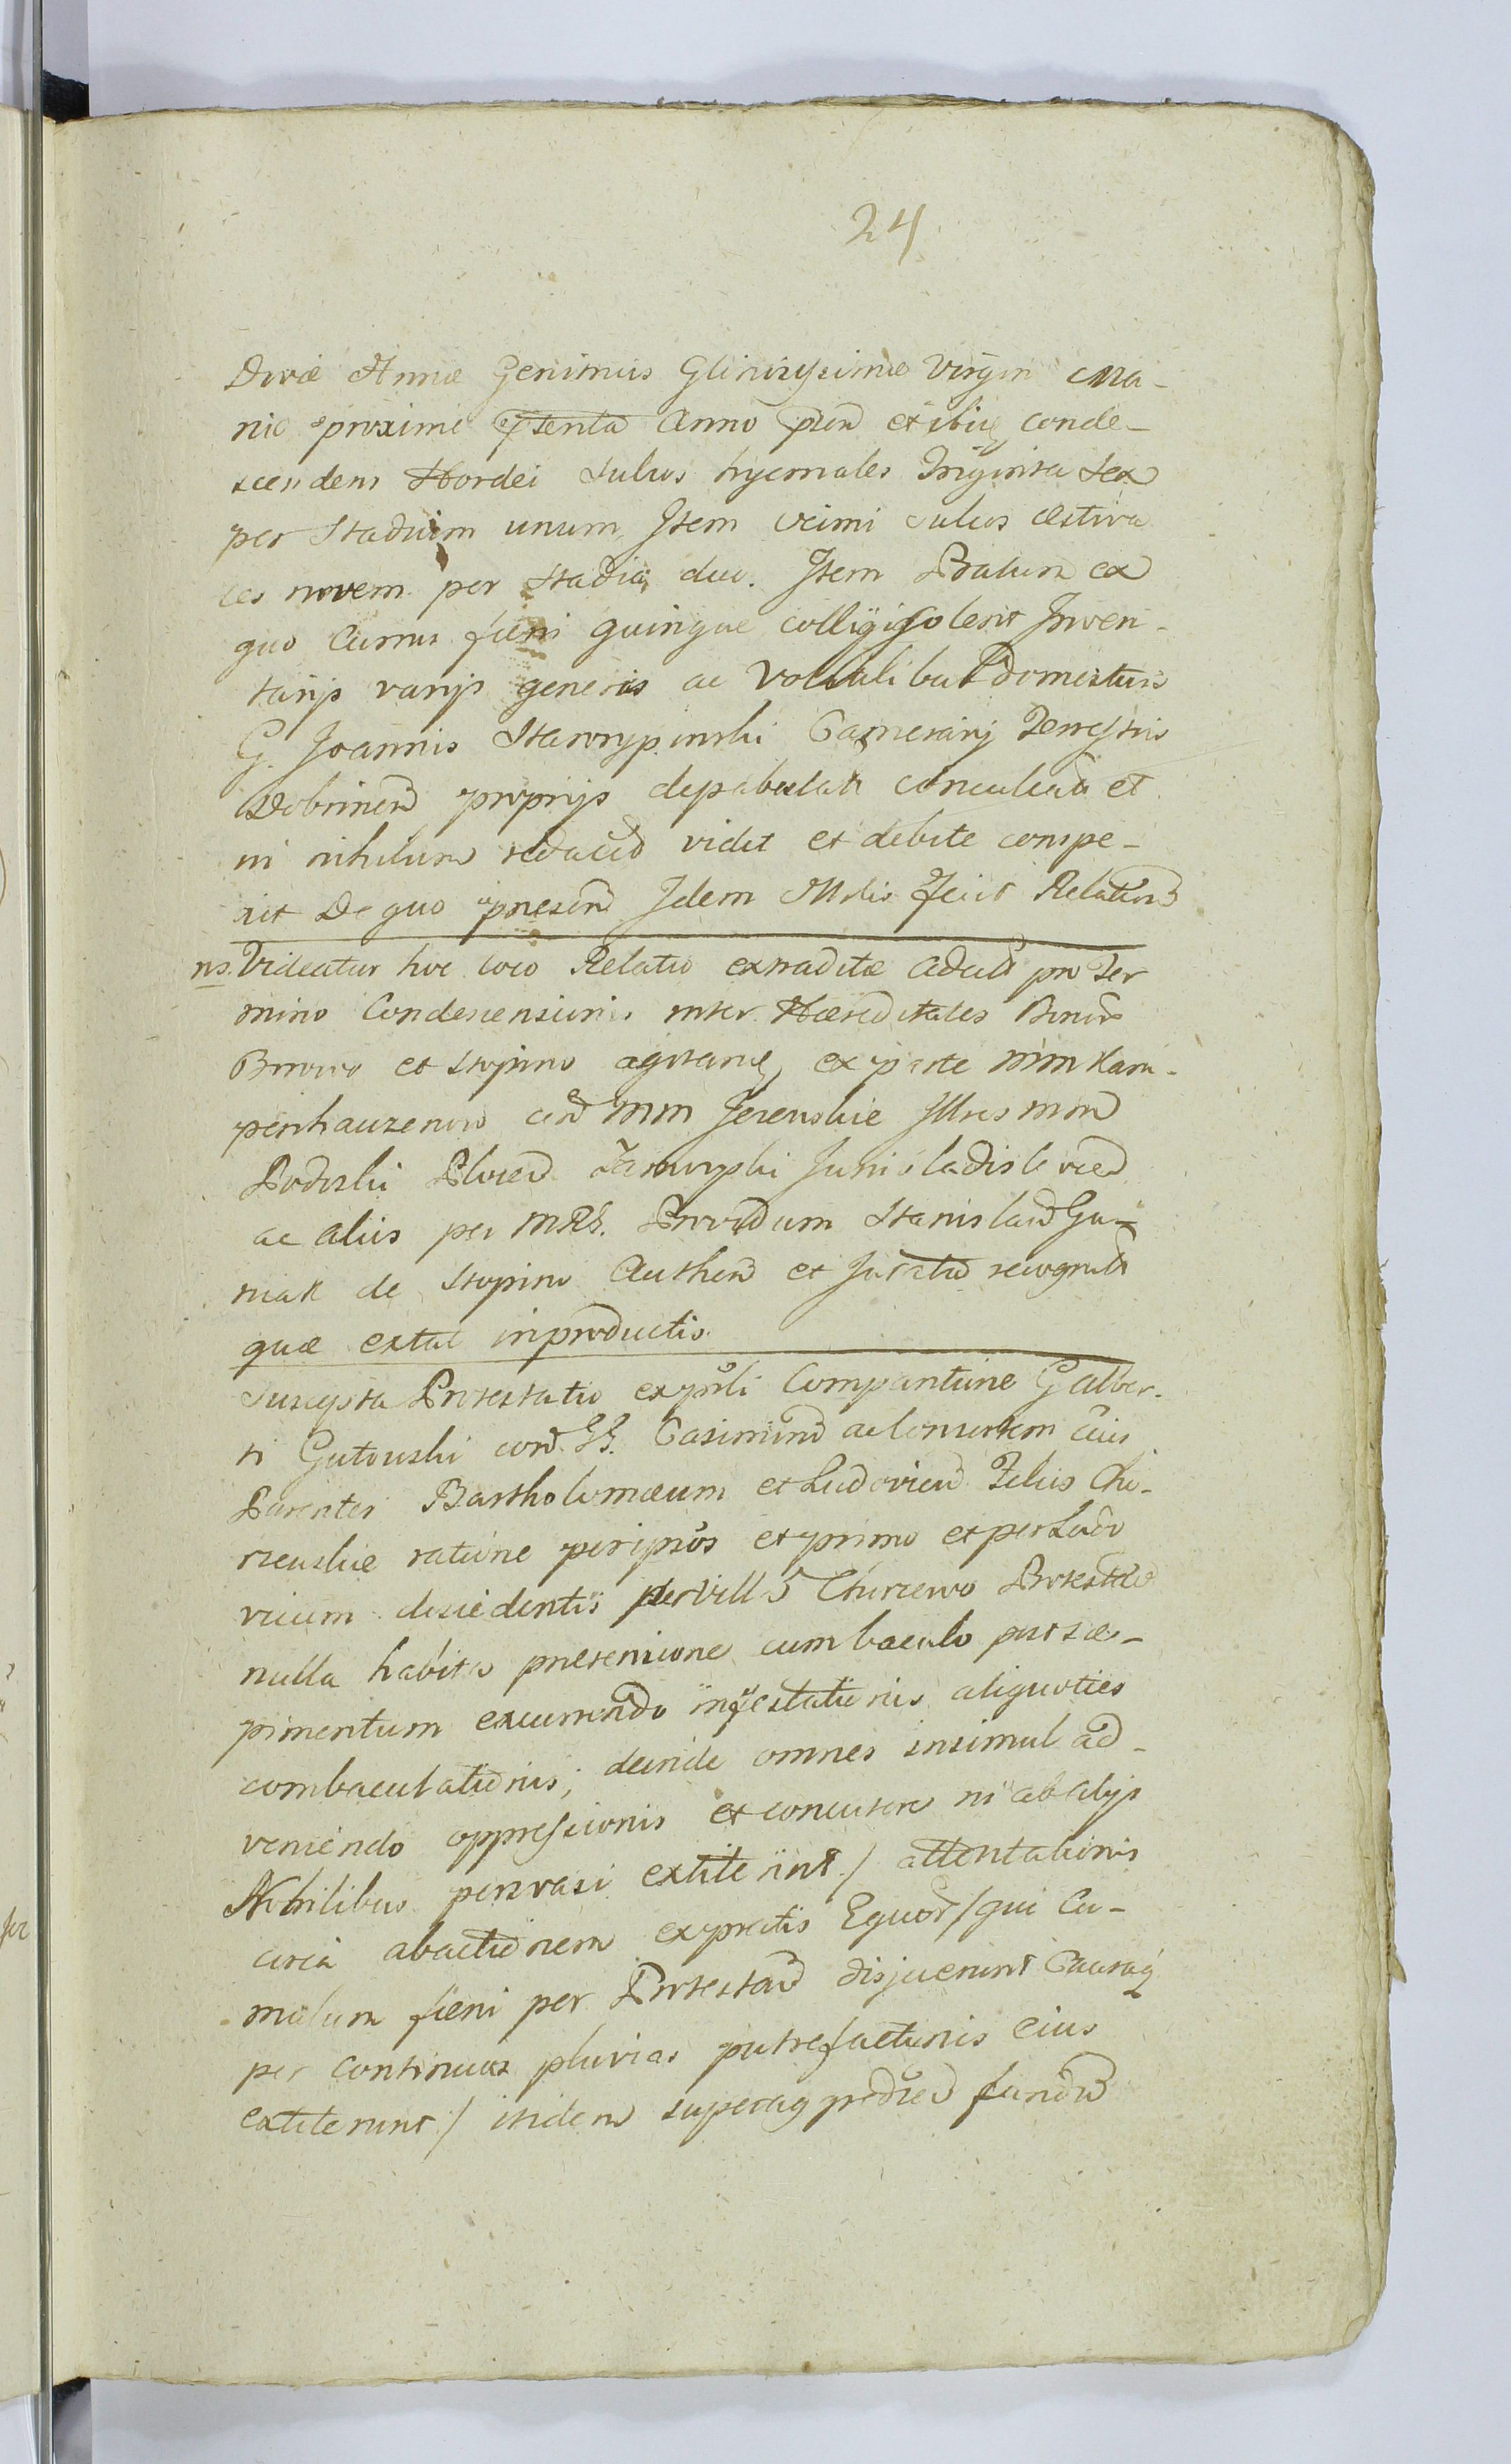 24
Divæ Annæ Genitricis Gloriosissimæ Virgin Ma-
riæ proxime Anno et ibiq conde-
scendens Hordei sulcos hyemales Triginta sex
per Stadium unum, Item sulcos æstiva
les novem per Stadia duo. Item Pratum ex
quo Currus fæni quinque colligi solent Inven-
tarijs varijs generis ac Vollatilibus domesticis
G. Joannis Starorypinski Camerarij Terrestris
Dobrinens proprijs depabulat conculcat et
in nihilum redact vidit et debite compe-
rit De quo præsens Idem Mtlis fecit Relation
ns. Videatur hoc loco Relatio extraditæ pro Ter
mino Condescensionis inter Hæreditates
et Stopino ex parte mm Kam-
penhauzenow mm Jezewskie Illres mm
Podoski Plocen
ac aliis per MRS. Providum Stanislaum
niak de Stopino Authen et Jurat recognit
quæ extat in productis.
Suscepta Protestatio ex pnli Comparitione G Alber-
ti Gutowski con GG. Casimirum ac Consortem eius
Parentes Bartholomæum et Ludovicum Filios Cho-
rzewskie ratione per ipsos et primo et per Ludo
vicum per Vill Chorzewo
nulla habita cum baculo post sæ-
pimentum excurrendo infestationis aliquoties
combaculationis; deinde omnes insimul ad-
veniendo oppressionis et ni ab alijs
Nobilibus persvasi extiterint / attentationis
circa abactionem Equor / qui Cu-
mulum fæni per Protestan disjecerunt Causaq
per continuas pluvias putrefactionis eius
extiterunt / itidem